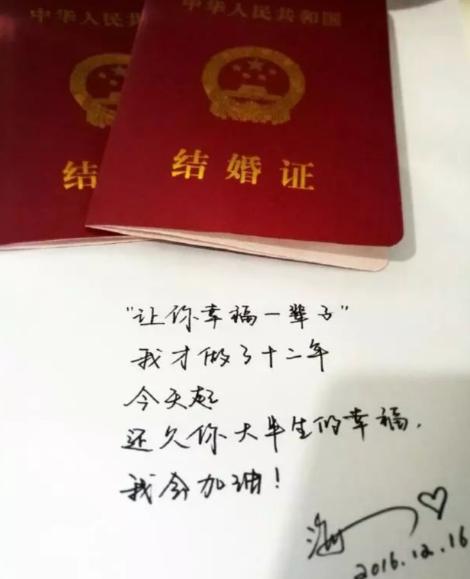 中华人民共
结
中华人民共和国
结婚证
"让你幸福一辈子"
我才做了十二年
今天起
还欠你大半生的幸福.
我会加油!
2016.12.16